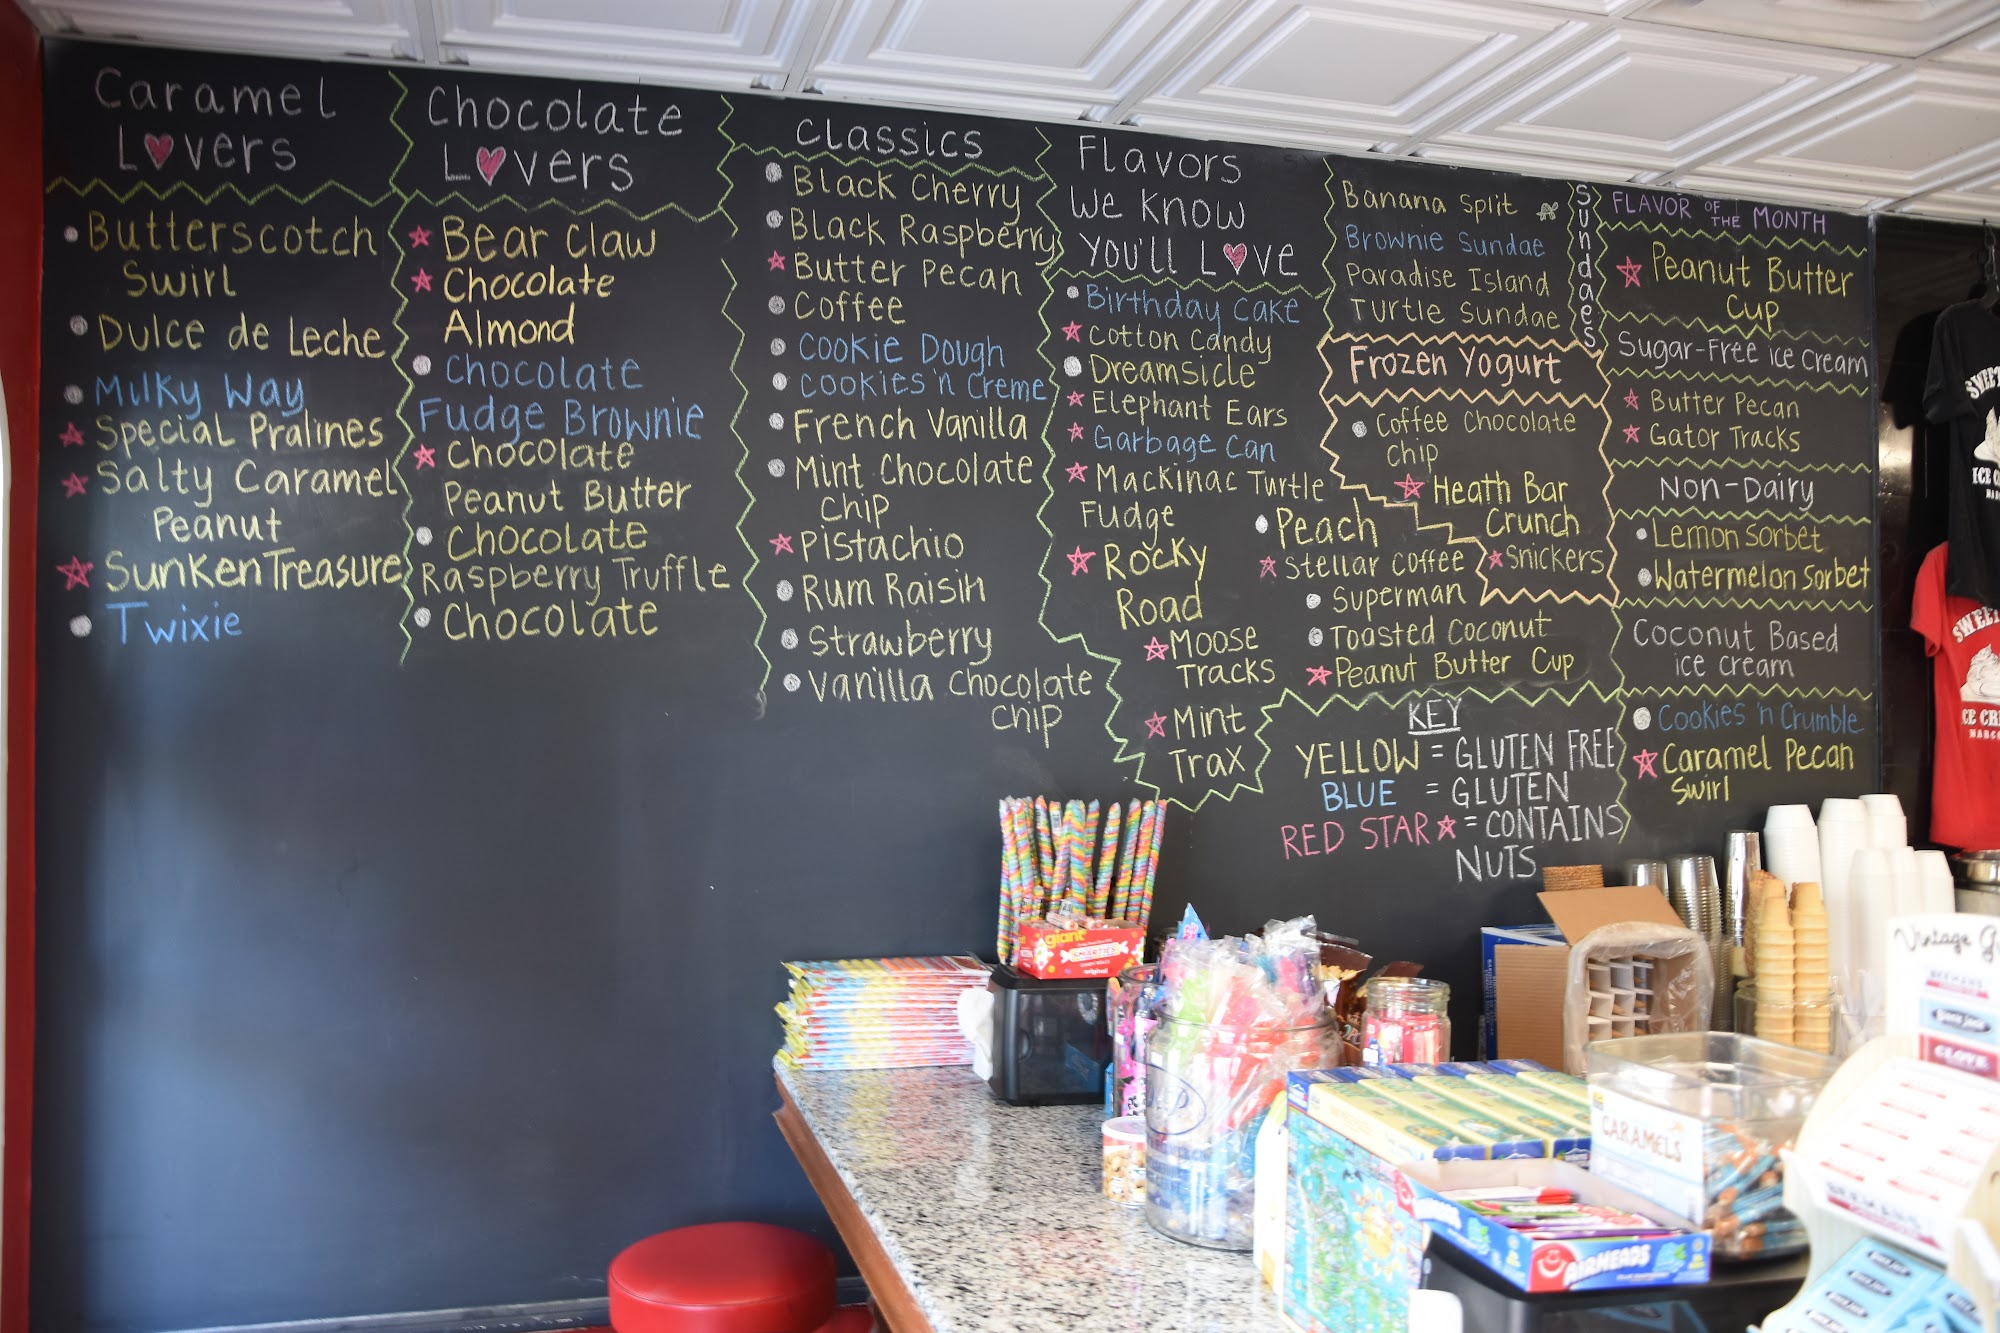 Caramel
Lovers
Butterscotch
Swirl
Dulce de Leche
Milky Way
Special Pralines
Salty Caramel
Peanut
Sunken Treasure
Twixie
Chocolate
Lovers
Bear Claw
Chocolate
Almond
Chocolate
Fudge Brownie
Chocolate
Peanut Butter
Chocolate
Raspberry Truffle
Chocolate
Classics
Black Cherry
Black Raspberry
Butter Pecan
Coffee
Cookie Dough
Cookies 'n Creme
French Vanilla
Mint Chocolate
Chip
Pistachio
Rum Raisin
Strawberry
Vanilla Chocolate
Chip
Flavors
We Know
You'll Love
Birthday Cake
Cotton Candy
Dreamsicle
Elephant Ears
Garbage Can
Mackinac Turtle
Fudge
Rocky
Road
Moose
Tracks
Mint
Trax
Peach
Stellar Coffee
Superman
Toasted Coconut
Peanut Butter Cup
Banana Split
Brownie Sundae
Paradise Island
Turtle Sundae
Sundaes
Frozen Yogurt
Coffee Chocolate
Chip
Heath Bar
Crunch
Snickers
KEY
YELLOW = GLUTEN FREE
BLUE = GLUTEN
RED STAR = CONTAINS
NUTS
FLAVOR OF THE MONTH
Peanut Butter
Cup
Sugar-Free ice cream
Butter Pecan
Gator Tracks
Non-Dairy
Lemon Sorbet
Watermelon Sorbet
Coconut Based
ice cream
Cookies 'n Crumble
Caramel Pecan
Swirl
SWEET
ICE
SWEET
ICE CR
giant
SMARTIES
original
CARAMELS
AIRHEADS
Vintage
BEEMANS
CLOVE